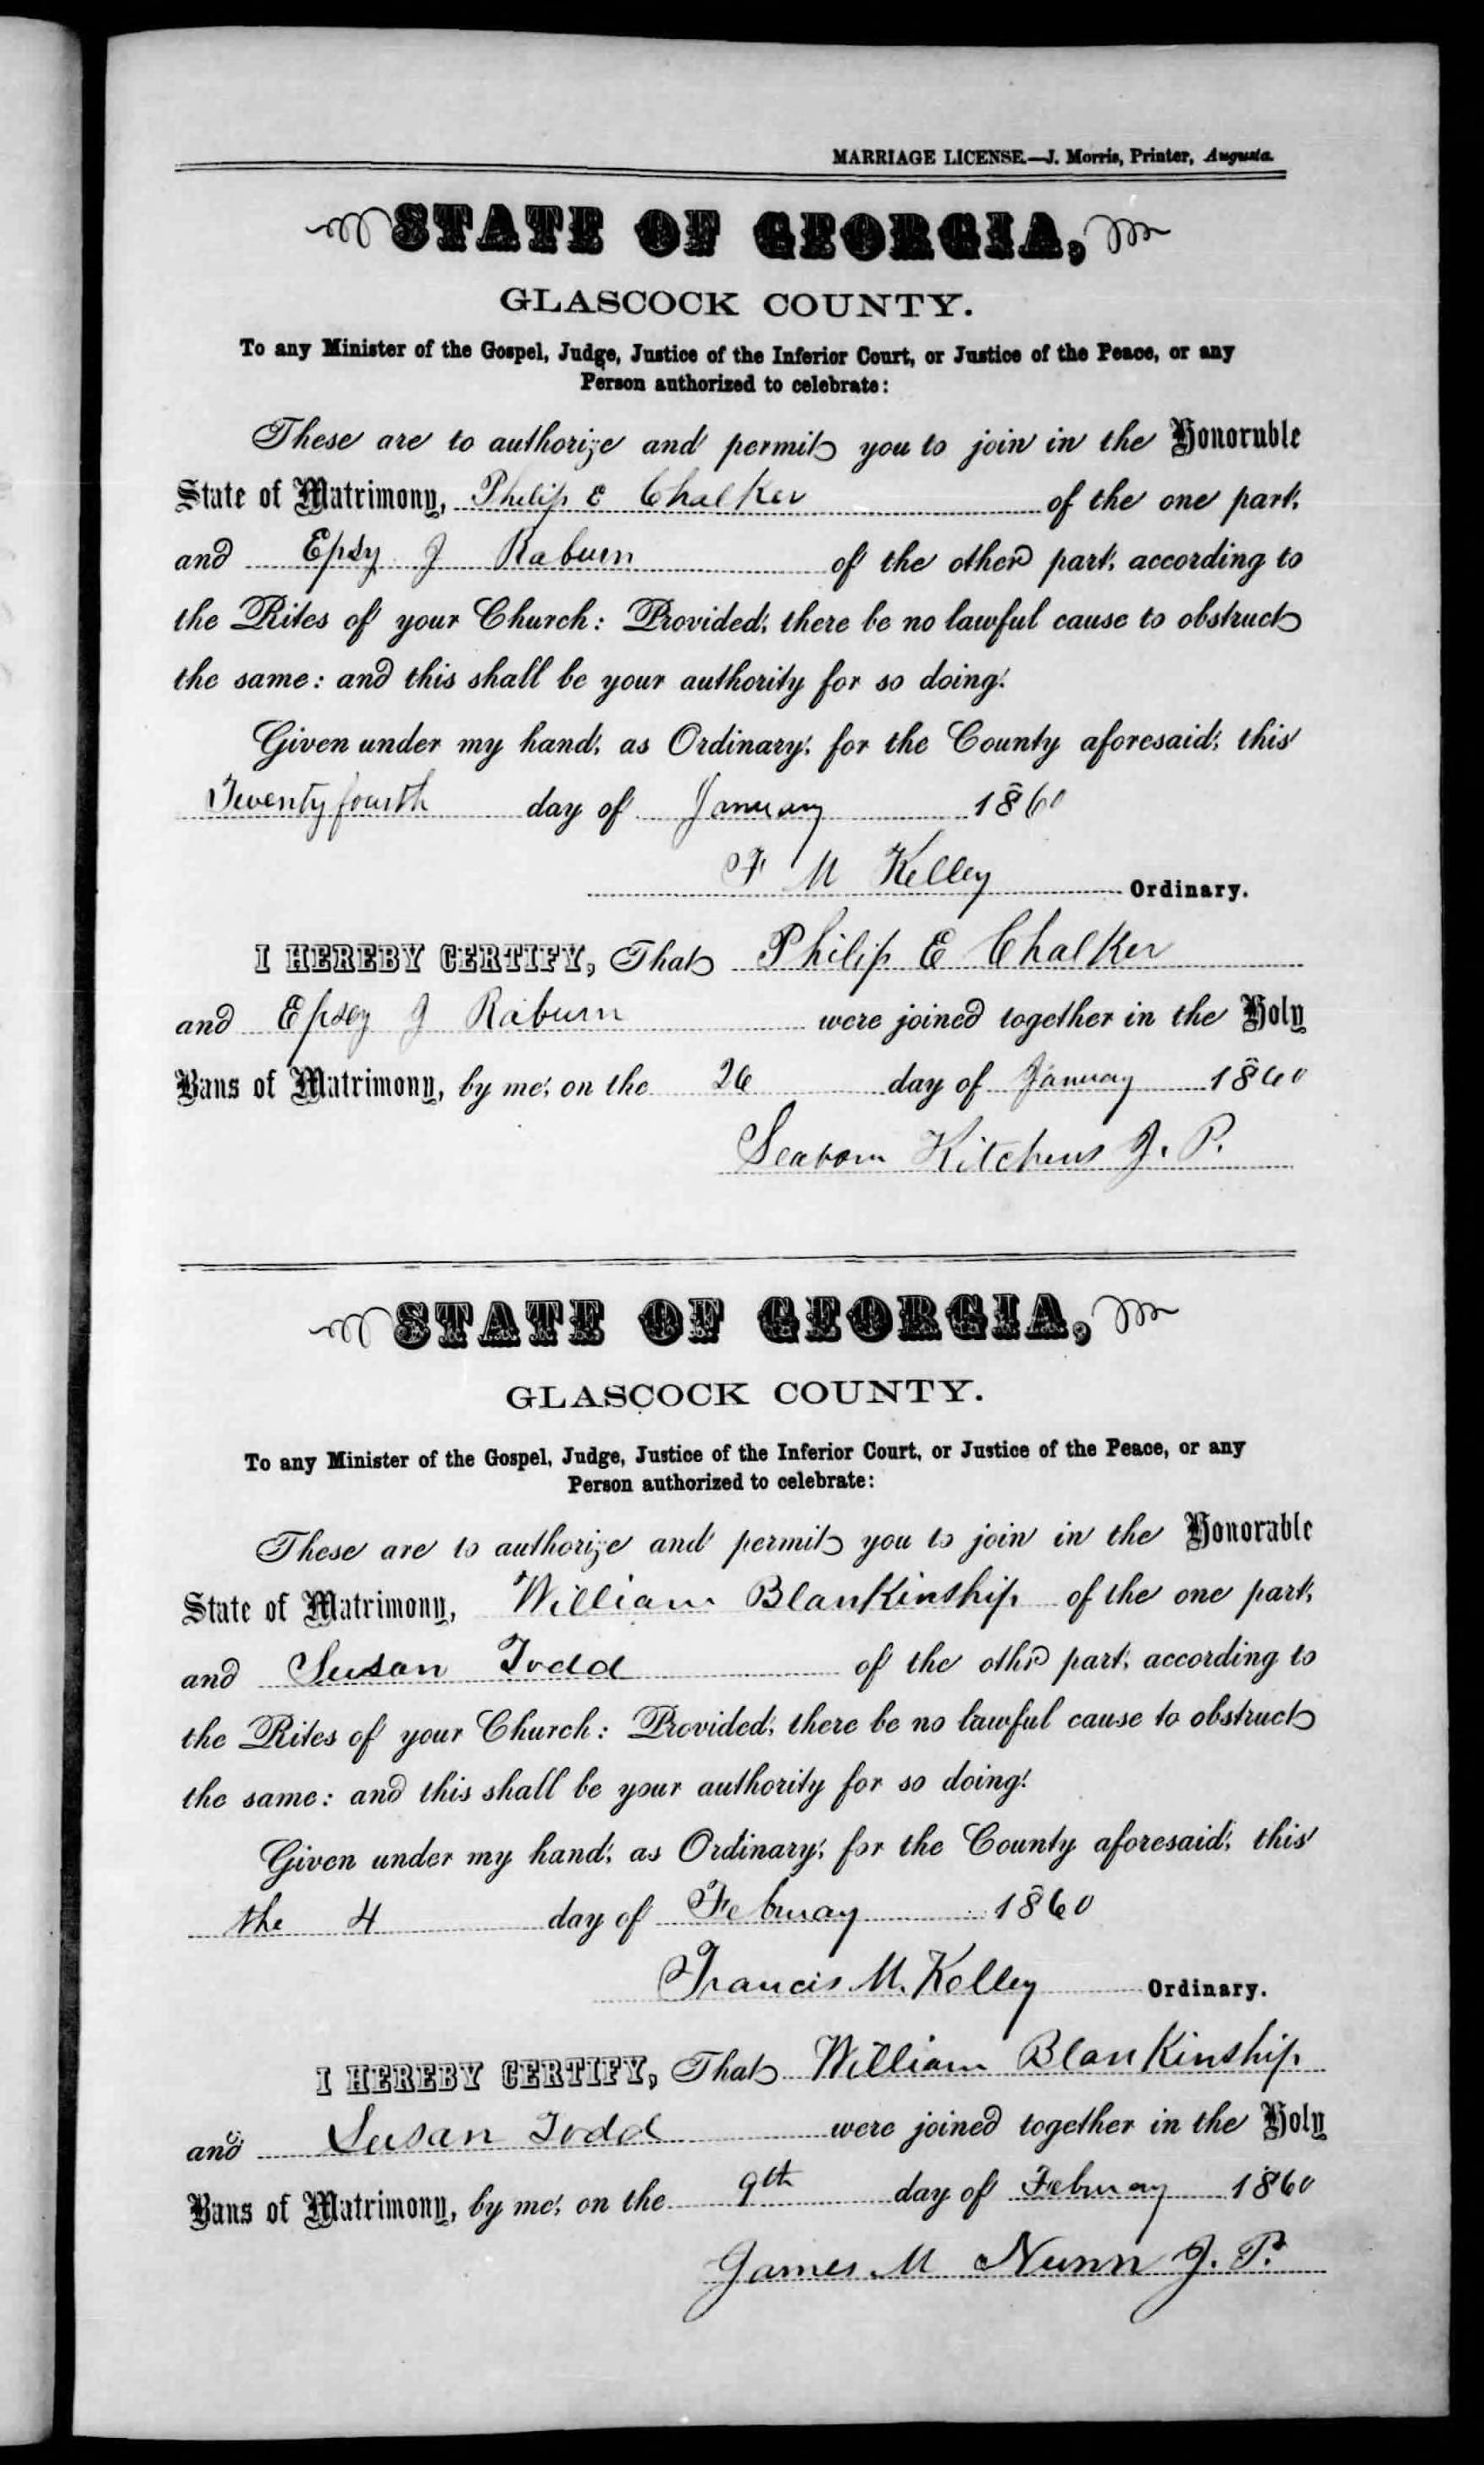 MARRIAGE LICENSE.—J. Morris, Printer, Augusta.
STATE OF GEORGIA,
GLASCOCK COUNTY.
To any Minister of the Gospel, Judge, Justice of the Inferior Court, or Justice of the Peace, or any
Person authorized to celebrate:
These are to authorize and permit you to join in the Honorable
State of Matrimony, Philip E Chalker of the one part,
and Epsy J Raburn of the other part, according to
the Rites of your Church: Provided, there be no lawful cause to obstruct
the same: and this shall be your authority for so doing.
Given under my hand, as Ordinary, for the County aforesaid, this
Twenty fourth day of January 1860
F M Kelley Ordinary.
I HEREBY CERTIFY, That Philip E Chalker
and Epsey J Raburn were joined together in the Holy
Bans of Matrimony, by me, on the 26 day of January 1860
Seaborn Kitchens J. P.
STATE OF GEORGIA,
GLASCOCK COUNTY.
To any Minister of the Gospel, Judge, Justice of the Inferior Court, or Justice of the Peace, or any
Person authorized to celebrate:
These are to authorize and permit you to join in the Honorable
State of Matrimony, William Blankinship of the one part,
and Susan Todd of the othr part, according to
the Rites of your Church: Provided, there be no lawful cause to obstruct
the same: and this shall be your authority for so doing.
Given under my hand, as Ordinary, for the County aforesaid, this
the 4 day of Febuary 1860
Francis M. Kelley Ordinary.
I HEREBY CERTIFY, That William Blankinship
and Susan Todd were joined together in the Holy
Bans of Matrimony, by me, on the 9th day of Febuary 1860
James M Nunn J. P.